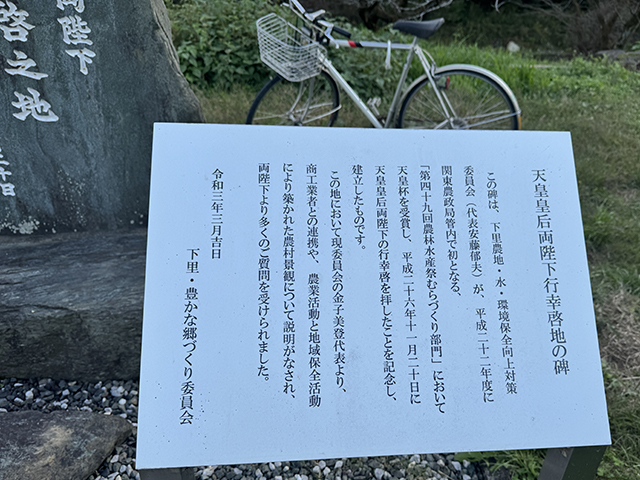 両陛下
啓之地
二十日
天皇皇后両陛下行幸啓地の碑
この碑は、下里農地・水・環境保全向上対策
委員会（代表安藤郁夫）が、平成二十二年度に
関東農政局管内で初となる、
「第四十九回農林水産祭むらづくり部門」において
天皇杯を受賞し、平成二十六年十一月二十日に
天皇皇后両陛下の行幸啓を拝したことを記念し、
建立したものです。
この地において現委員会の金子美登代表より、
商工業者との連携や、農業活動と地域保全活動
により築かれた農村景観について説明がなされ、
両陛下より多くのご質問を受けられました。
令和三年三月吉日
下里・豊かな郷づくり委員会